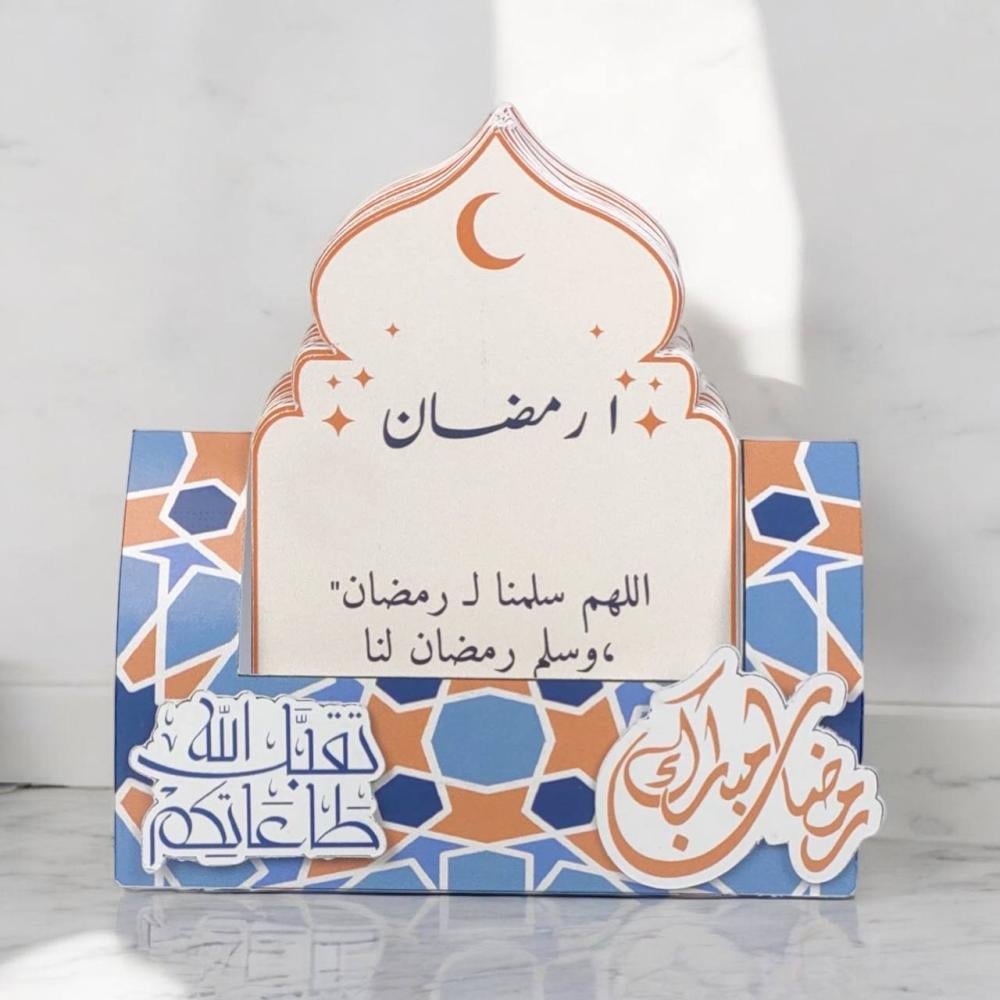 ١ رمضان
اللهم سلمنا لـ رمضان"
،وسلم رمضان لنا
تقبَّل الله
طَاعَاتِكم
رمضان مبارك